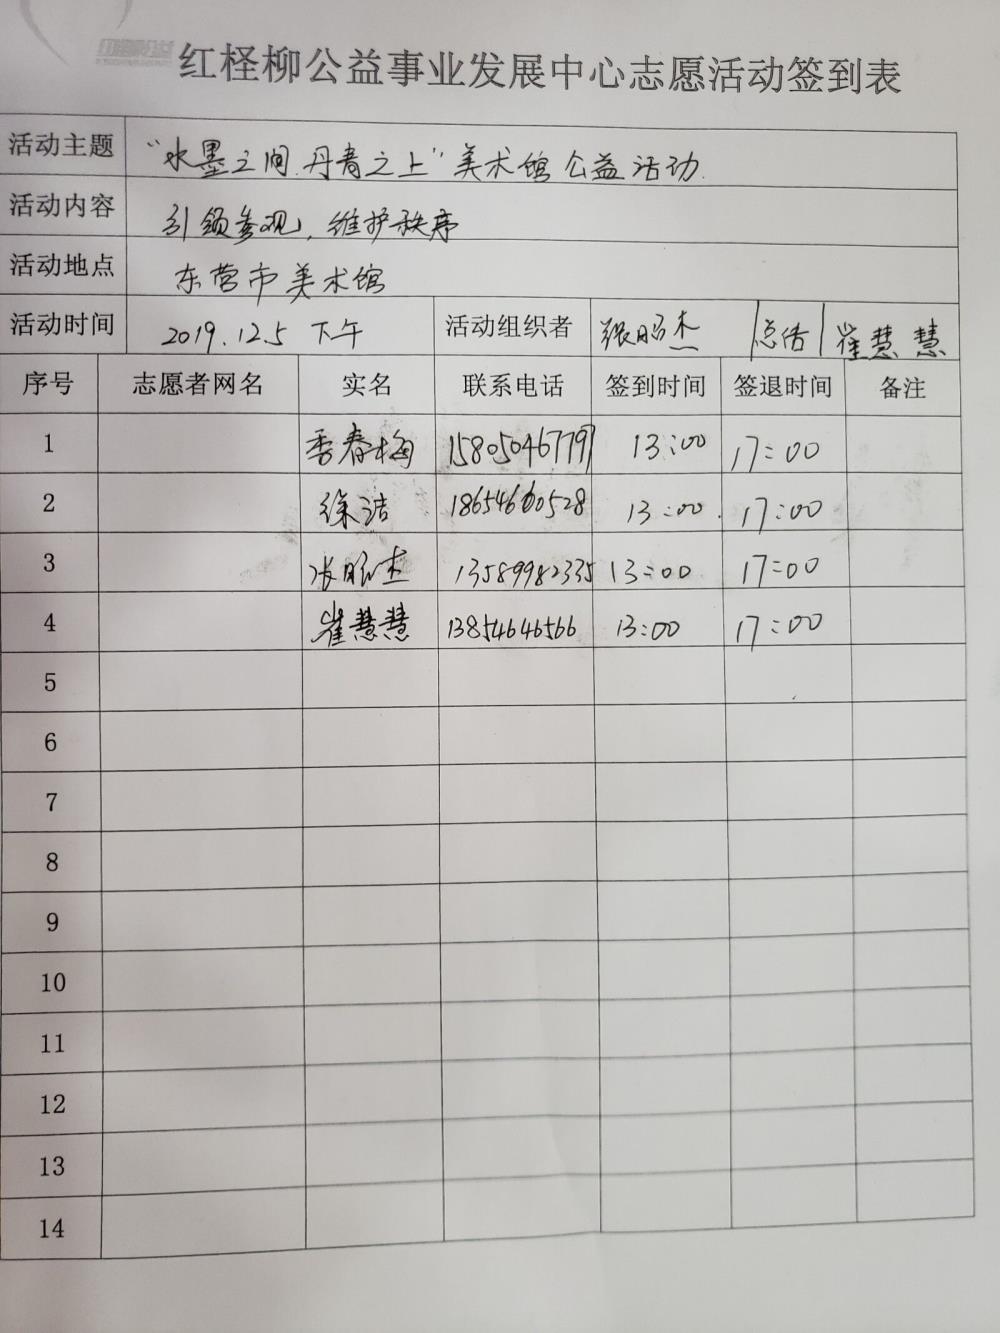 红柽柳公益事业发展中心志愿活动签到表
活动主题 "水墨之间.丹青之上"美术馆公益活动.
活动内容 引领参观,维护秩序
活动地点 东营市美术馆
活动时间 2019.12.5 下午 活动组织者 张昭杰 总结 崔慧慧
序号 志愿者网名 实名 联系电话 签到时间 签退时间 备注
1 季春梅 15805467797 13:00 17:00
2 徐洁 18654660528 13:00 17:00
3 张昭杰 13589982335 13:00 17:00
4 崔慧慧 13854646566 13:00 17:00
5
6
7
8
9
10
11
12
13
14